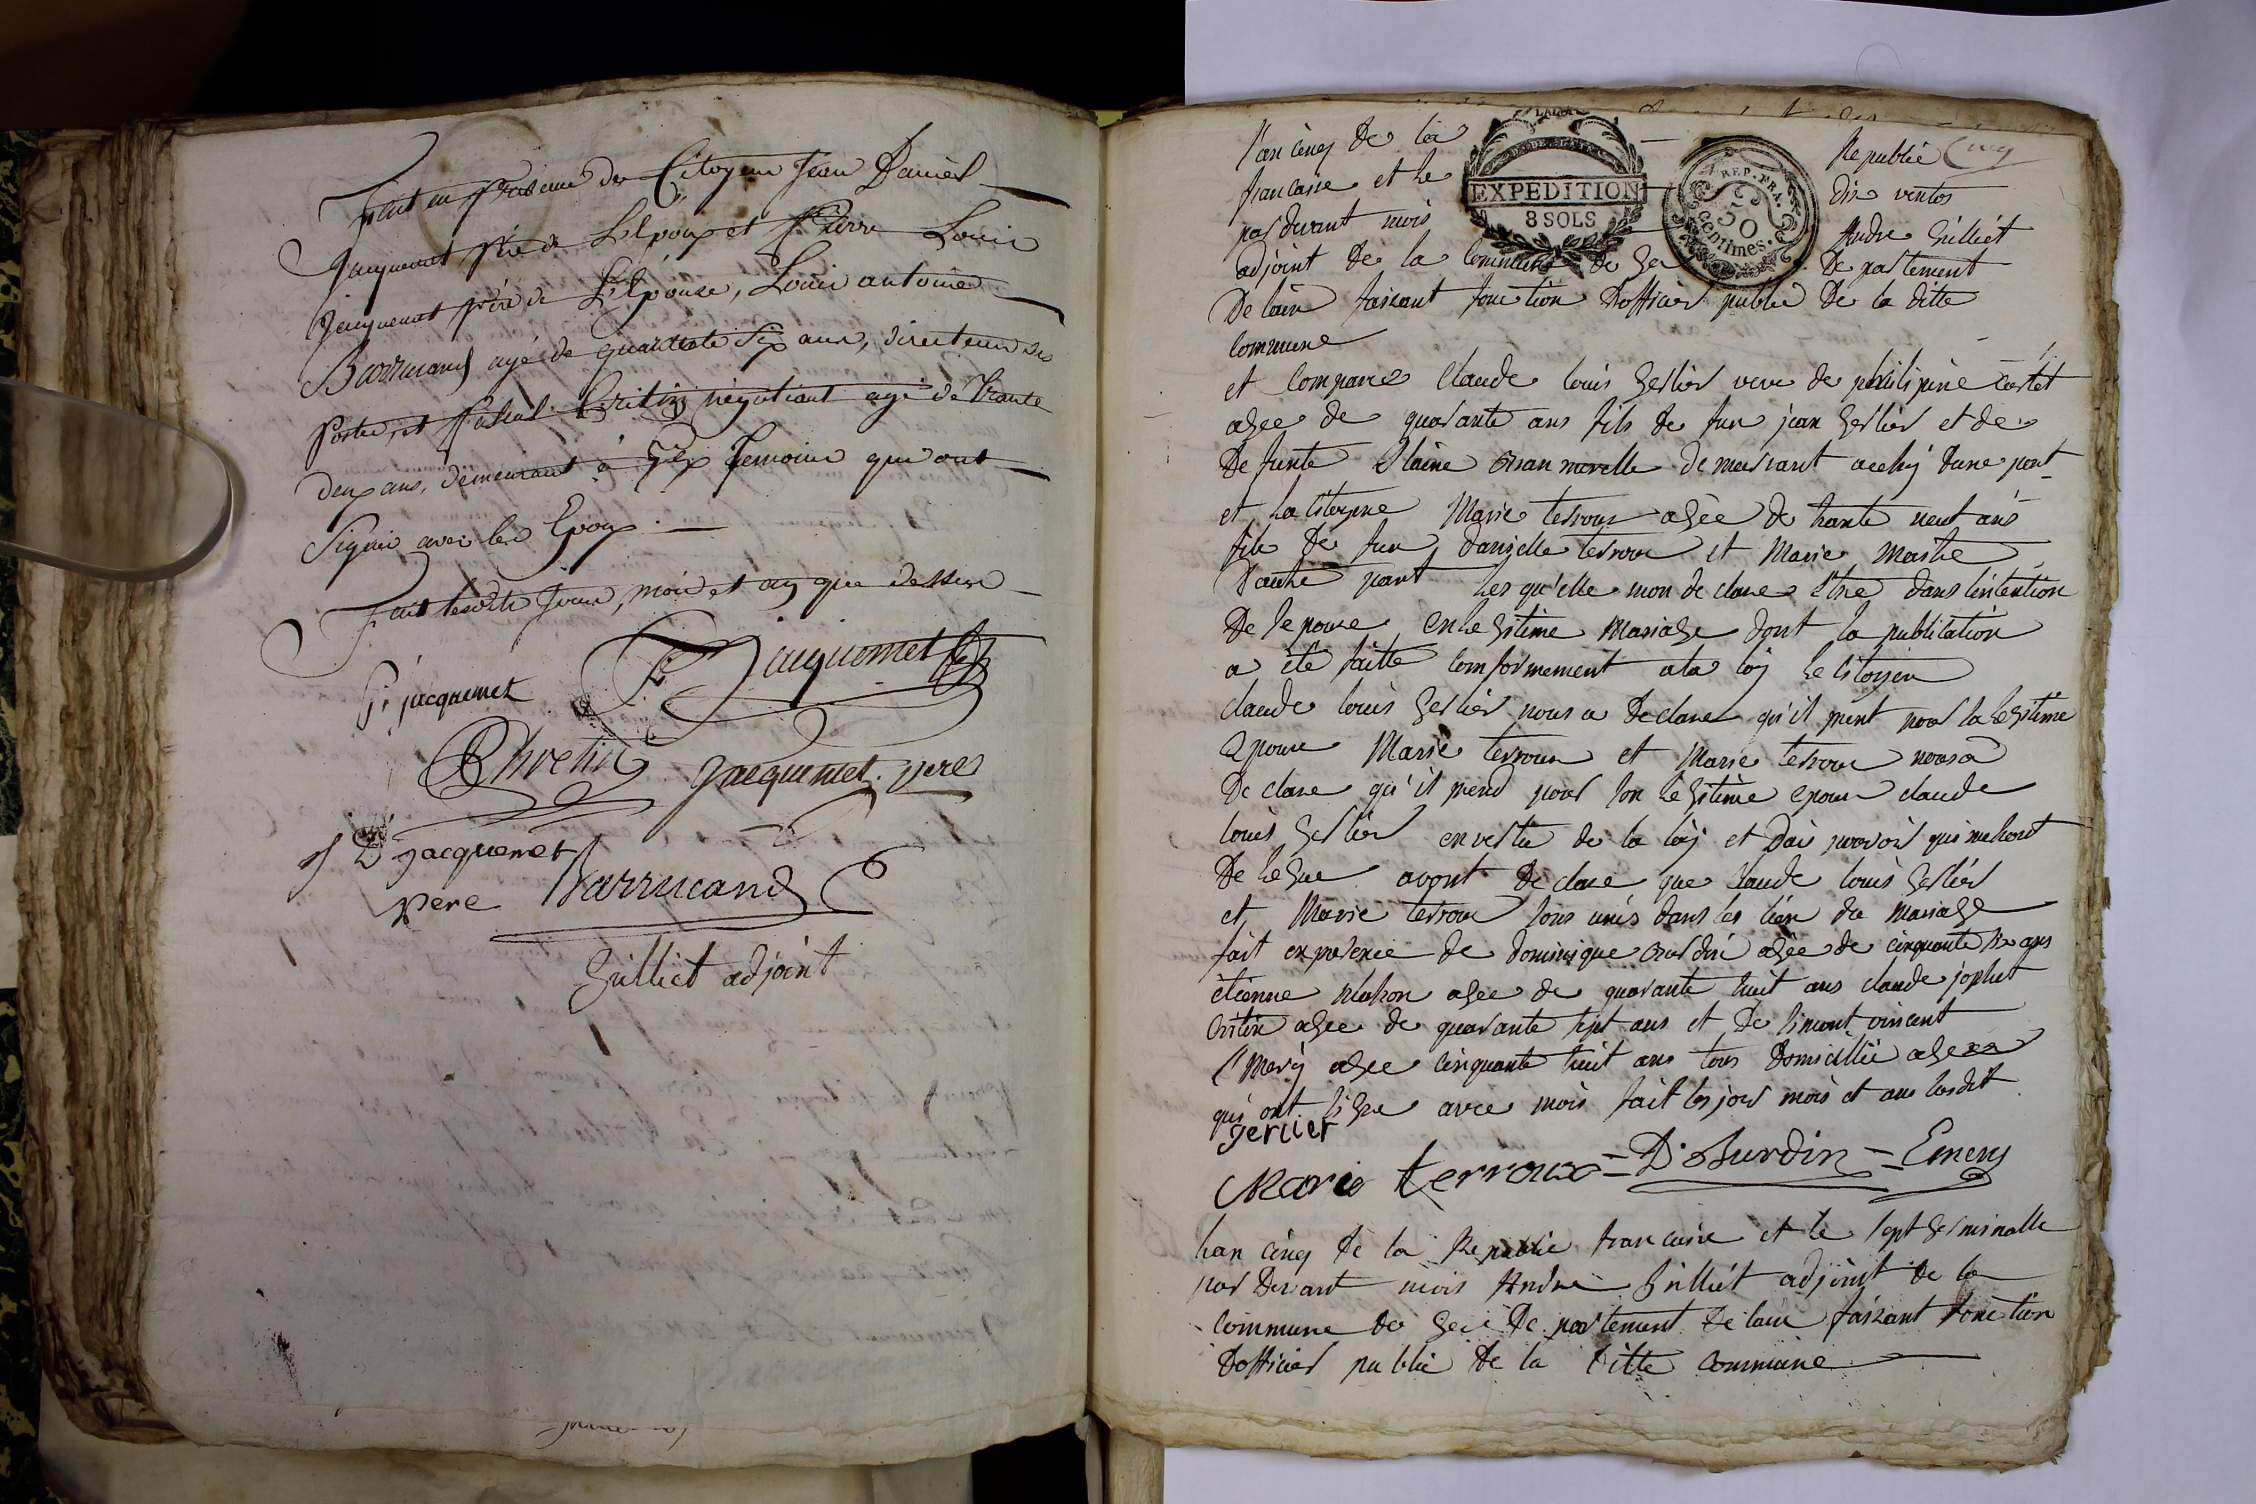 Fait en présence des Citoyens Jean Daniel
Jacquemet père de L'Epoux et Pierre Louis
Jacquemet père de L'Epouse, Louis antoine
Barrucand agé de quarante Six ans, directeur des
Postes, et négotiant agé de Trante
deux ans, demeurant à Gex Temoins qui ont
Signé avec les Epoux
Fait lesdits Jour, mois et an que dessus
jacquemet
Jacquemet
Chretin
Jacquemet pere
J D Jacquemet
pere
Barrucand
Gilliet adjoint
l'an cinq de la Republic
EXPEDITION
8 SOLS
REP. FRA.
50
Centimes.
francaise et le dix ventos
par devant mois Andre Gilliet
adjoint de la Commune de Gex De partement
De lain faisant fonction Dofficier public De la ditte
Commune
et Comparue Claude louis Gerlier veve de philipine
agee de quarante ans fils de feu jean Gerlier et de
De funte demeurant dune part
et la Citoyene Marie terroux agèe de trante neuf ans
file de feu danielle terroux et Marie
dautre part les qu'elle mon de clare être dans lintention
De le pouse en le gitime Mariage dont la publication
a été faitte Comformement a la loy le Citoyen
claude louis Gerlier nous a De clare qu'il prent pour la legitime
epouse Marie terroux et Marie terroux nous a
De clare qu'il prend pour son legitime epoux claude
louis Gerlier en vertu de la loy et Dai pouvoir qui
De legue avont De clare que Claude louis Gerlier
et Marie terroux sons unis dans les lien du Mariage
fait en presence de dominique agèe de cinquante ans
etienne agee de quarante huit ans claude jophet
agee de quarante sept ans et de vincent
Emery agee cinquante huit ans tous Domicillié a Gex
qui ont signe avec mois fait les jour mois et ans susdit
gerlier
Marie terroux D. Burdin Emery
lan cinq de la Republic francaise et le sept Germinalle
par Devant mois Andre Gilliet adjoint de la
Commune de Gex De partement De lain faisant fonction
Dofficier public de la ditte commune